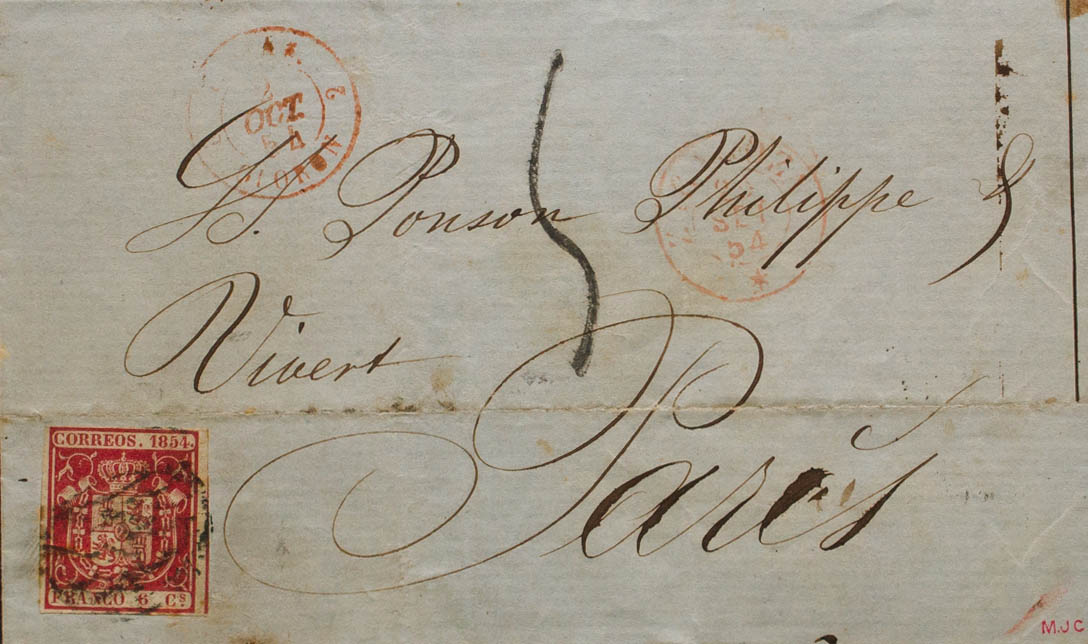 OCT
54
2
5
SS. Ponson Philippe &
SET
54
Vivert
París
CORREOS. 1854.
FRANCO 6 Cs
M.J.C